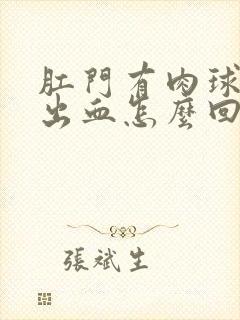 肛門有肉球
出血怎麼回
張斌生